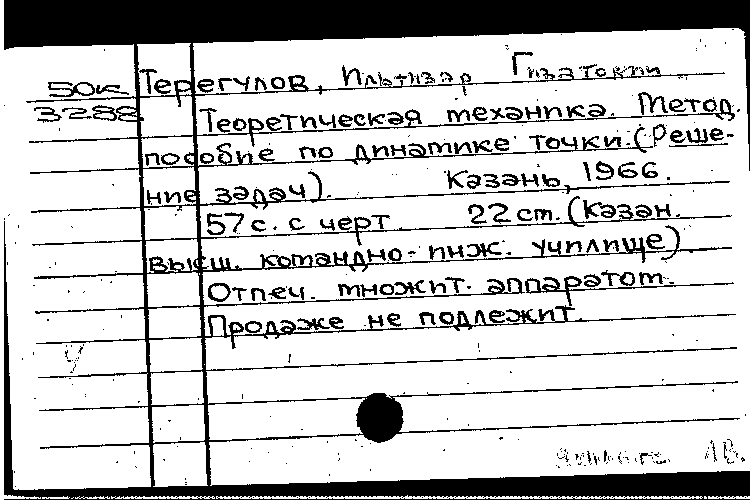 50к Терегулов, Ильтизар Гизатович
3288 Теоретическая механика. Метод.
пособие по динамике точки. (Реше-
ние задач). Казань, 1966.
57 с. с черт. 22 см. (Казан.
высш. командно-инж. училище)
Отпеч. множит. аппаратом.
Продаже не подлежит.